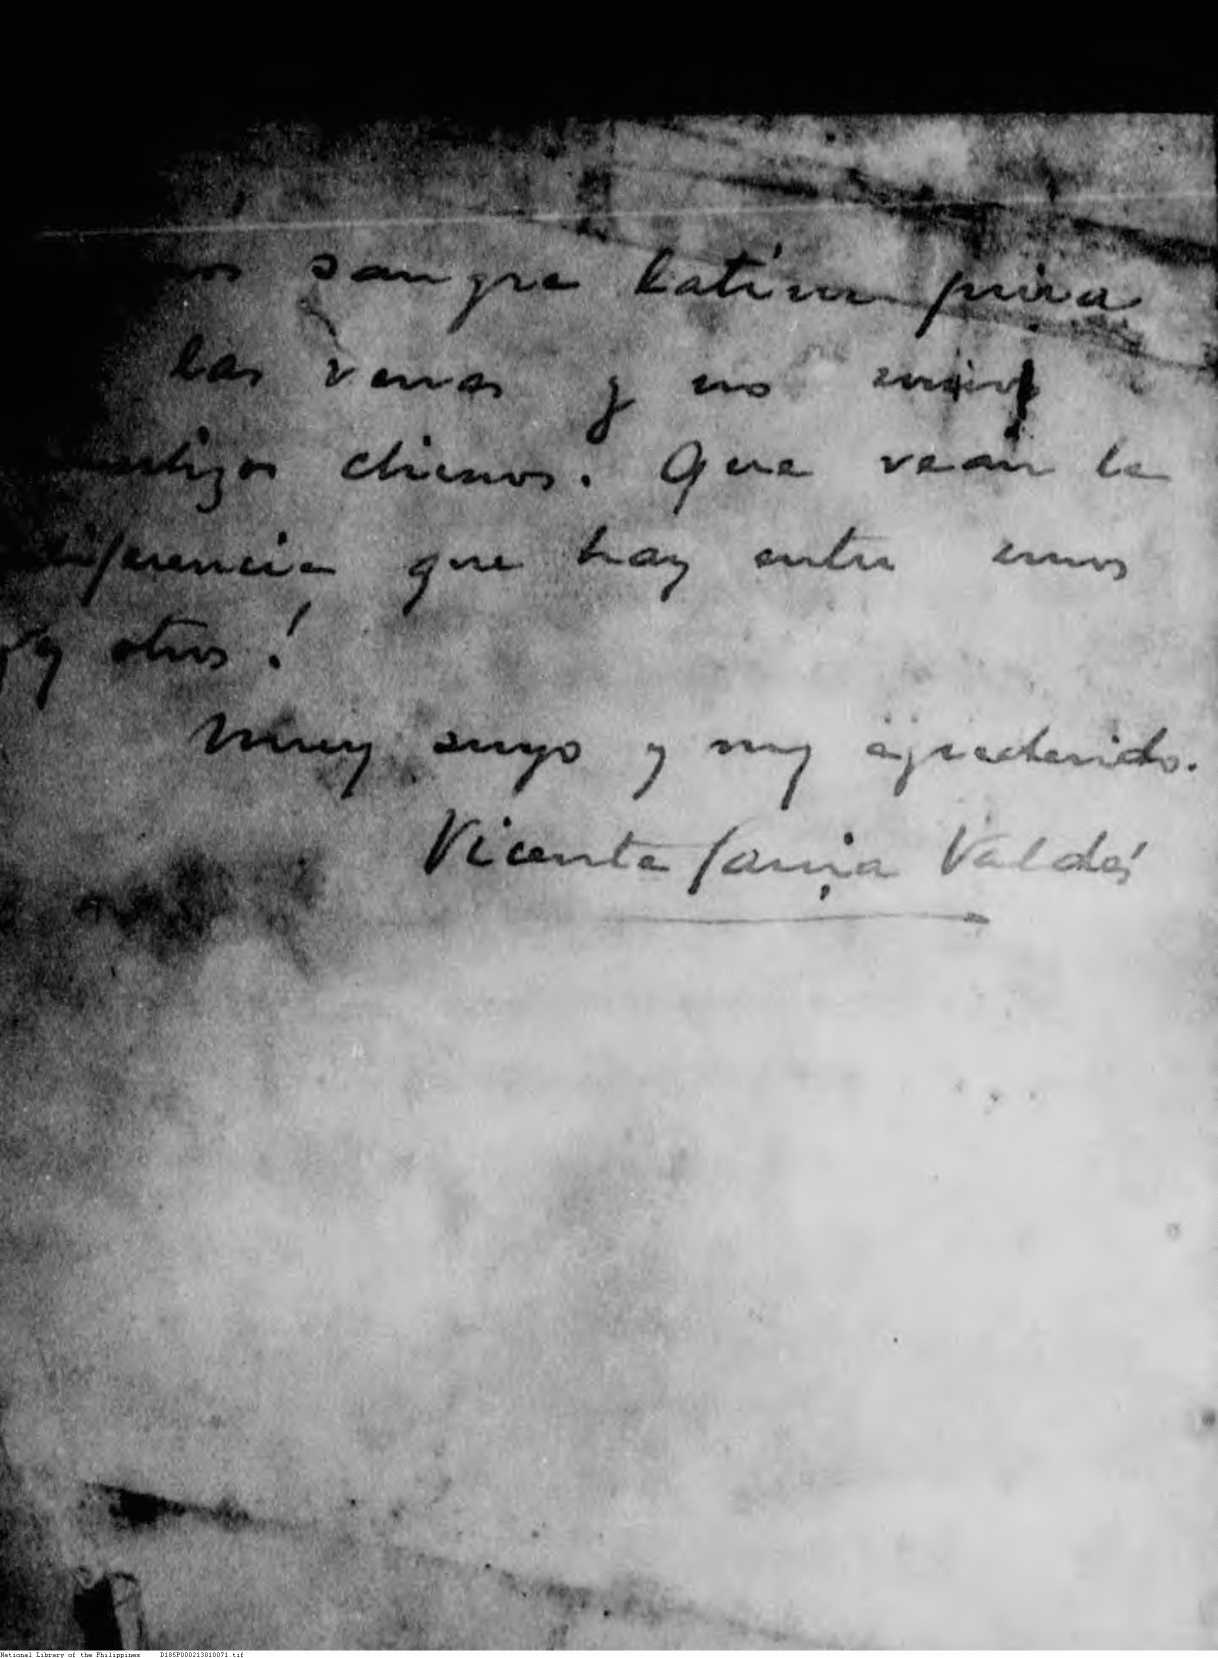 sangre latina pura
las venas y no
chinos. Que vean la
diferencia que hay entre unos
y otros!
Muy suyo y muy agradecido.
Vicente Valdés
National Library of the Philippines D186P000213810071.tif